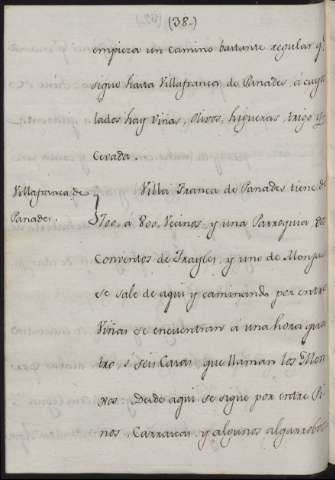 (38.)
empieza un camino bastante regular q.
sigue hasta Villafranca de Panades, á cuyos
lados hay Viñas, Olivos, higueras, trigo y
Cevada.
Villafranca de Panades.
Villa Franca de Panades tiene de
700, á 800, Vecinos, y una Parroquia, dos
Conventos de Frayles, y uno de Monjas
se sale de aqui y caminando por entre
Viñas se encuentran á una hora qua
tro, ó seis Casas que llaman los Mon
jos: Desde aqui se sigue por entre Pi
nos, Carrascas, y algunos algarrobos